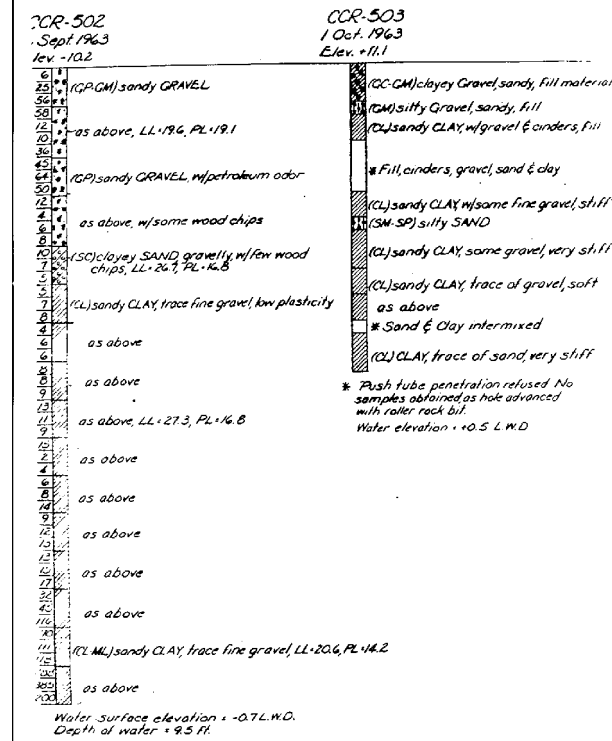 CCR-502
Sept. 1963
lev. -10.2
6
25
56
58
12
10
36
45
64
50
12
4
6
8
10
7
(GP-GM) sandy GRAVEL
as above, LL=19.6, PL=19.1
(GP) sandy GRAVEL, w/petroleum odor
as above, w/some wood chips
(SC) clayey SAND gravelly, w/few wood
chips, LL=26.7, PL=16.8
7
8
4
6
6
8
9
13
11
9
2
4
6
8
14
9
12
17
(CL) sandy CLAY, trace fine gravel, low plasticity
as above
as above
as above, LL=27.3, PL=16.8
as above
as above
as above
as above
as above
(CL-ML) sandy CLAY, trace fine gravel, LL=20.6, PL=14.2
as above
Water surface elevation = -0.7 L.W.D.
Depth of water = 9.5 Ft.
CCR-503
1 Oct. 1963
Elev. +11.1
(GC-GM) clayey Gravel, sandy, Fill material
(GM) silty Gravel, sandy, fill
(CL) sandy CLAY, w/gravel & cinders, fill
* Fill, cinders, gravel, sand & clay
(CL) sandy CLAY, w/some fine gravel, stiff
(SM-SP) silty SAND
(CL) sandy CLAY, some gravel, very stiff
(CL) sandy CLAY, trace of gravel, soft
as above
* Sand & Clay intermixed
(CL) CLAY, trace of sand, very stiff
* Push tube penetration refused. No
samples obtained, as hole advanced
with roller rock bit.
Water elevation = +0.5 L.W.D